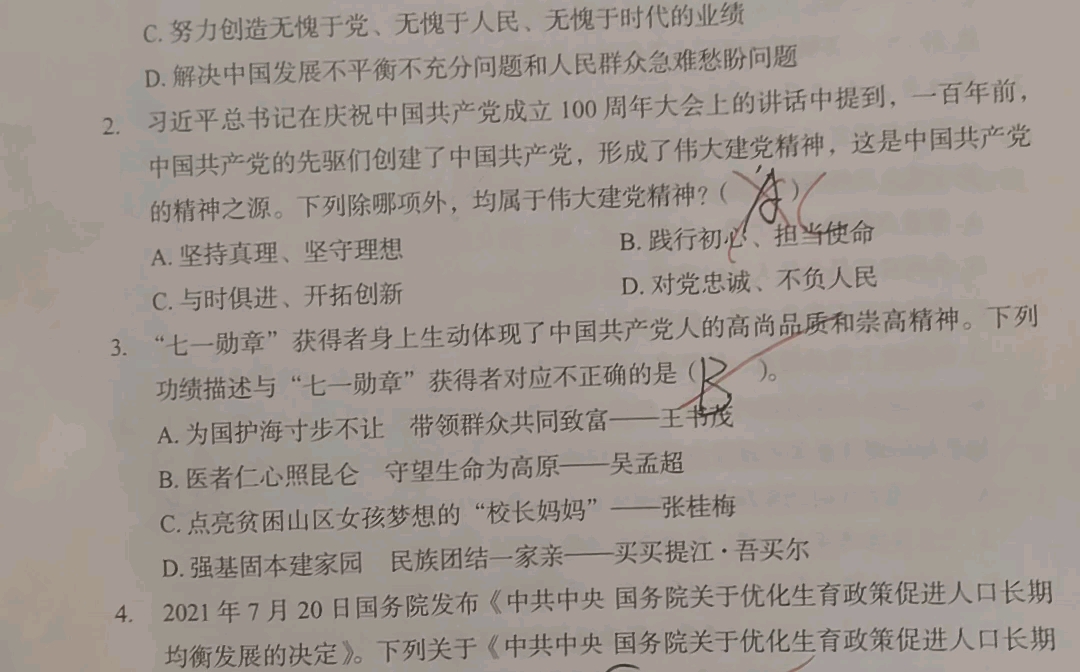 C. 努力创造无愧于党、无愧于人民、无愧于时代的业绩
D. 解决中国发展不平衡不充分问题和人民群众急难愁盼问题
2. 习近平总书记在庆祝中国共产党成立 100 周年大会上的讲话中提到，一百年前，
中国共产党的先驱们创建了中国共产党，形成了伟大建党精神，这是中国共产党
的精神之源。下列除哪项外，均属于伟大建党精神？（ A ）C
A. 坚持真理、坚守理想 B. 践行初心、担当使命
C. 与时俱进、开拓创新 D. 对党忠诚、不负人民
3. “七一勋章”获得者身上生动体现了中国共产党人的高尚品质和崇高精神。下列
功绩描述与“七一勋章”获得者对应不正确的是（ B ）。
A. 为国护海寸步不让 带领群众共同致富——王书茂
B. 医者仁心照昆仑 守望生命为高原——吴孟超
C. 点亮贫困山区女孩梦想的“校长妈妈”——张桂梅
D. 强基固本建家园 民族团结一家亲——买买提江·吾买尔
4. 2021 年 7 月 20 日国务院发布《中共中央 国务院关于优化生育政策促进人口长期
均衡发展的决定》。下列关于《中共中央 国务院关于优化生育政策促进人口长期